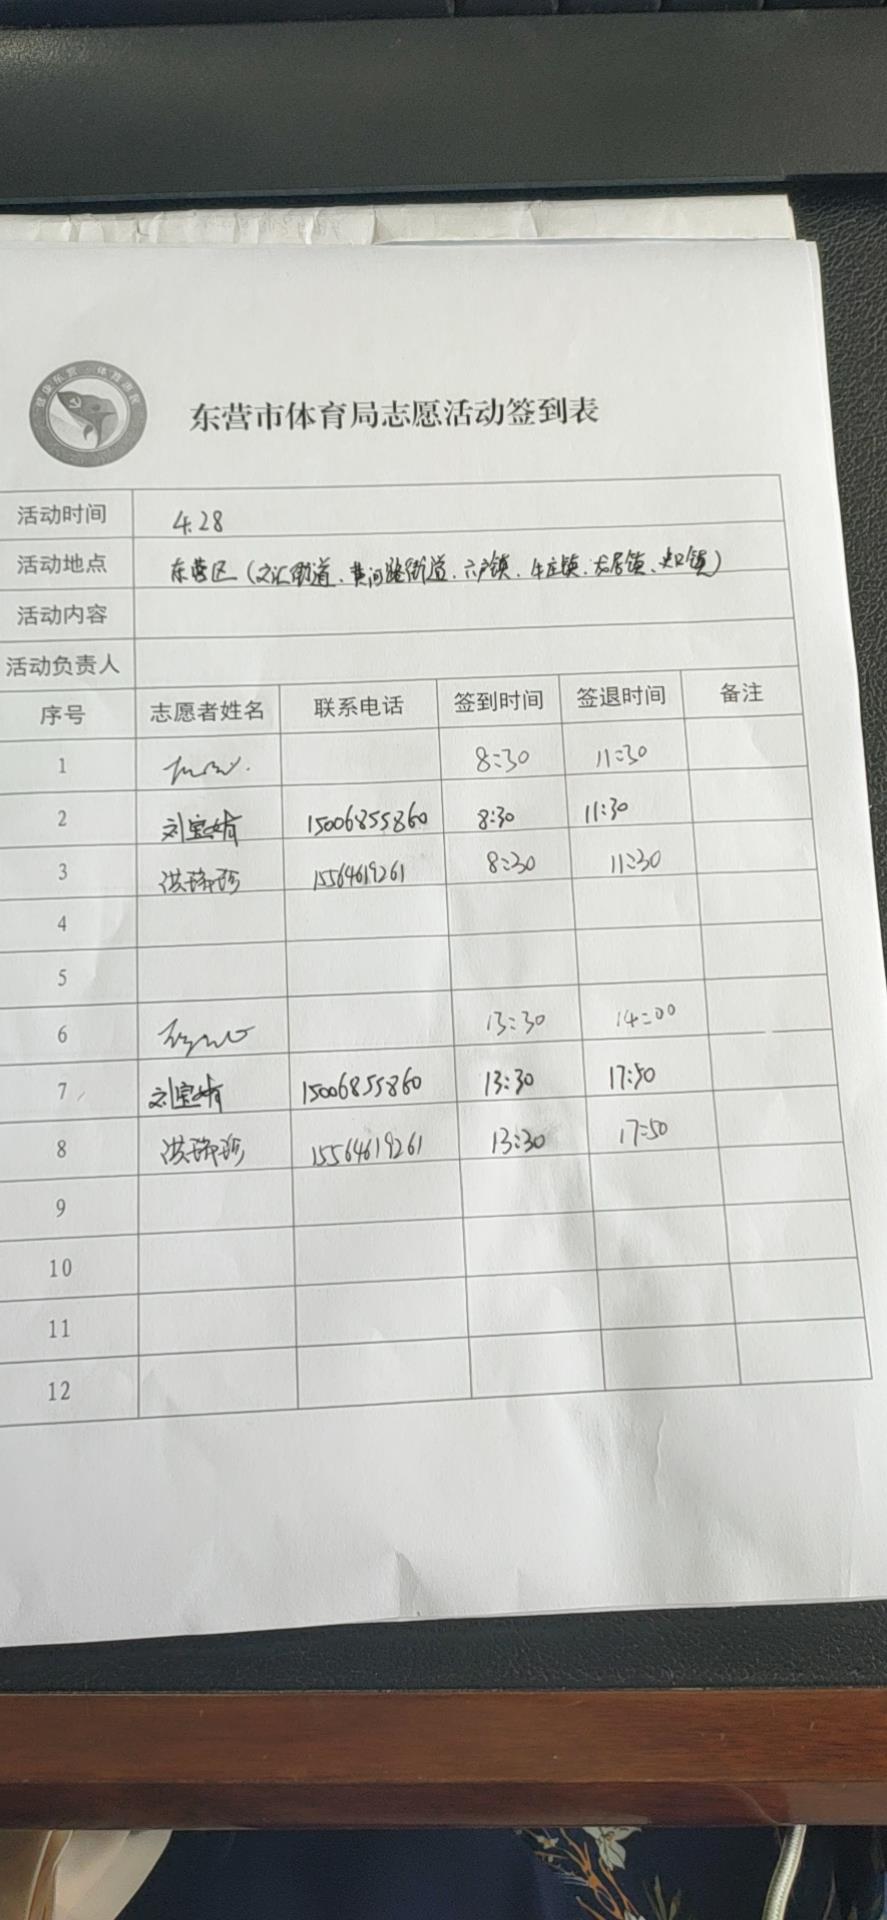 健康东营 体育惠民
东营市体育局志愿活动签到表
活动时间 4.28
活动地点 东营区(文汇街道、黄河路街道、六户镇、牛庄镇、龙居镇、史口镇)
活动内容
活动负责人
序号 志愿者姓名 联系电话 签到时间 签退时间 备注
1 8:30 11:30
2 刘宝娟 15006855860 8:30 11:30
3 洪 15564619261 8:30 11:30
4
5
6 13:30 14:00
7 刘宝娟 15006855860 13:30 17:50
8 洪 15564619261 13:30 17:50
9
10
11
12